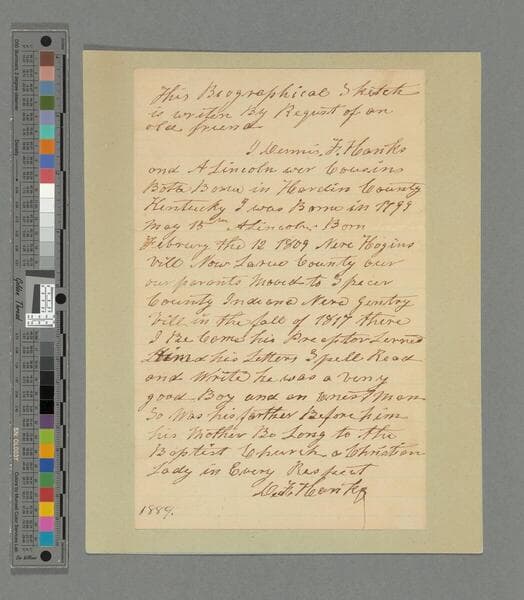 This Biographical Sketch
is writen By Request of an
old friend
I Dennis F. Hanks
and A Lincoln wer Cousins
Both Borne in Hardin County
Kentucky I was Borne in 1799
May 15th A Lincoln Born
Februry the 12 1809 Nere Hogins
vill Now Larue County our
our parents Moved to Specer
County Indiana Nere Gentry
vill in the fall of 1817 there
I Be Came his Preceptor Lerned
Him his Letters Spell Read
and Write he was a very
good Boy and an onest Man
So Was his farther Before him
his Mother Be Long to the
Baptist Church a Christian
Lady in Every Respect
D. F. Hanks
1889.
Golden Thread